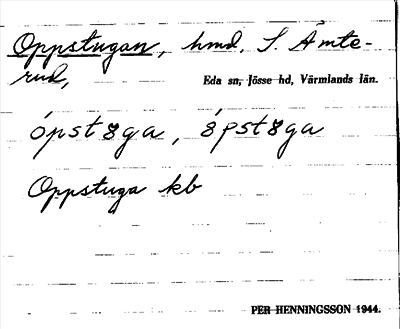 Oppstugan, hmd, S. Ämte-
rud,
Eda sn, Jösse hd, Värmlands län.
Oppstuga kb
PER HENNINGSSON 1944.